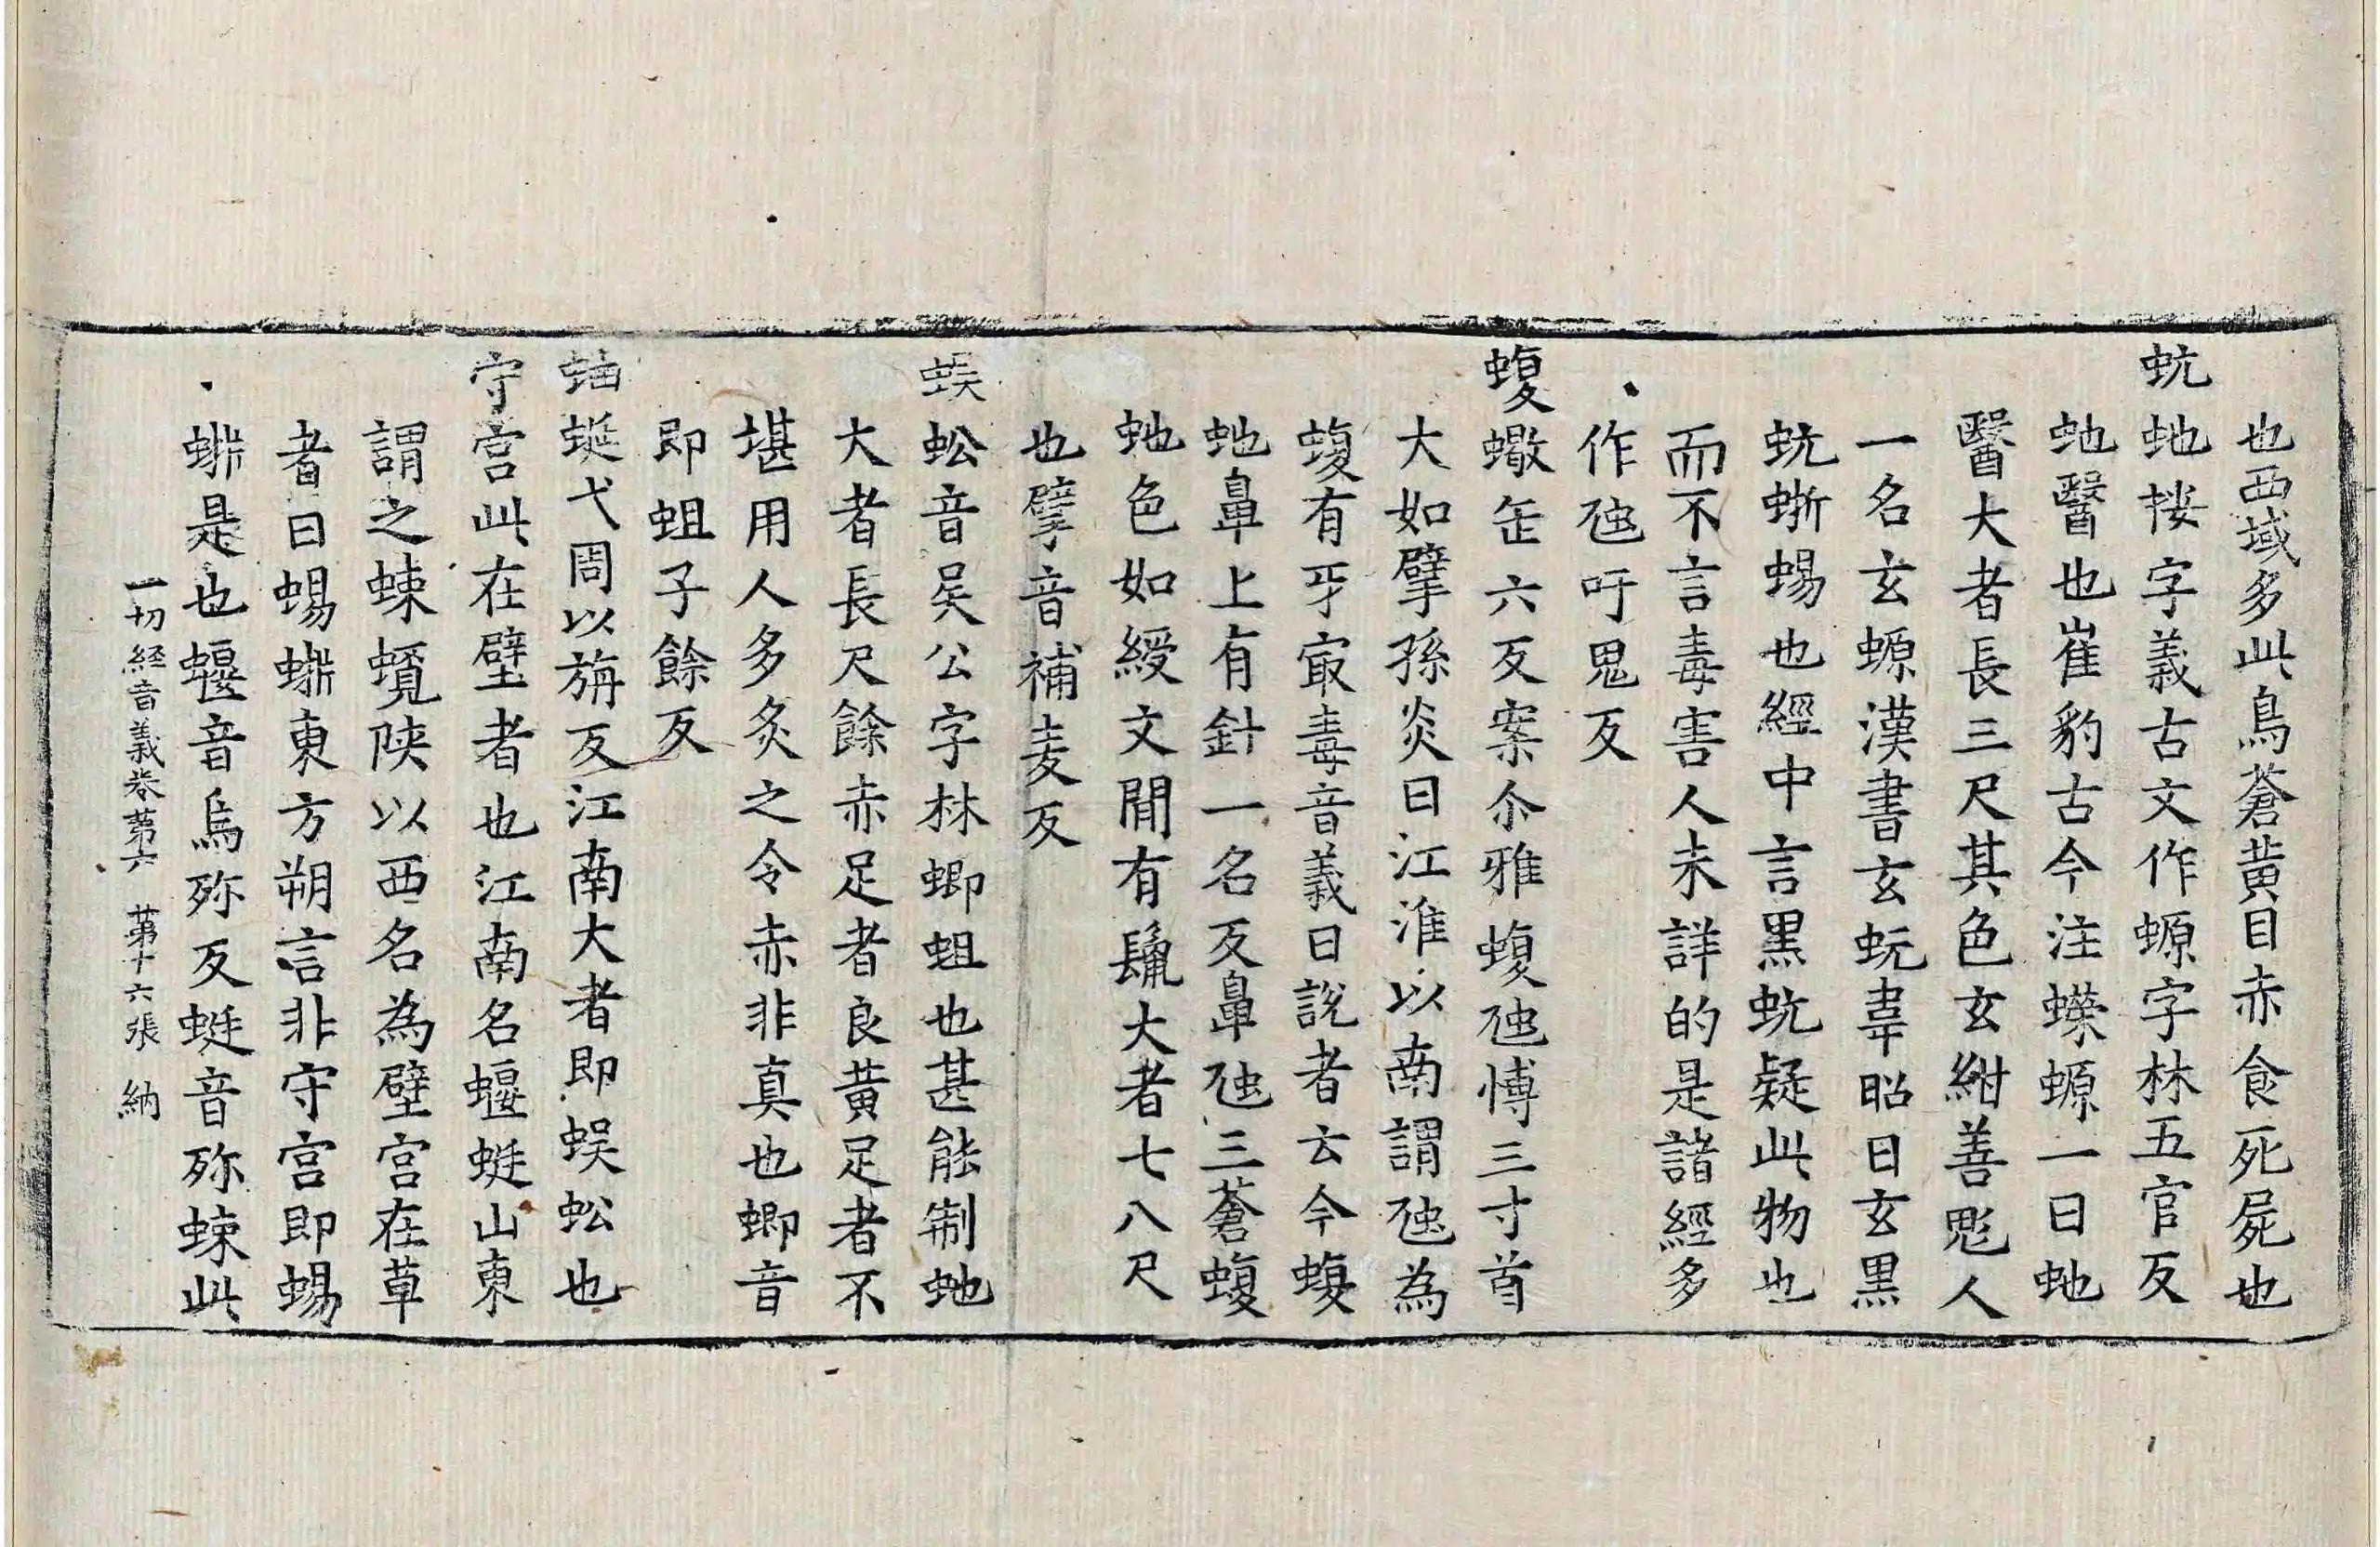 也西域多此鳥蒼黄目赤食死屍也
蚖虵挍字義古文作螈字林五官反
虵醫也崔豹古今注蠑螈一曰虵
醫大者長三尺其色玄紺善魅人
一名玄螈漢書玄蚖韋昭曰玄黒
蚖蜥蜴也經中言黒蚖疑此物也
而不言毒害人未詳的是諸經多
作虺吁鬼反
蝮蠍缶六反案尒雅蝮虺博三寸首
大如擘孫炎曰江淮以南謂虺為
蝮有牙㝡毒音義曰說者云今蝮
虵鼻上有針一名反鼻虺三蒼蝮
虵色如綬文閒有鬣大者七八尺
也擘音補麦反
蜈蚣音吴公字林蝍蛆也甚能制虵
大者長尺餘赤足者良黄足者不
堪用人多炙之令赤非真也蝍音
即蛆子餘反
蚰蜒弋周以旃反江南大者即蜈蚣也
守宫此在壁者也江南名蝘蜓山東
謂之蝀蜆陕以西名為壁宫在草
者曰蜴蜥東方朔言非守宫即蜴
蜥是也蝘音烏殄反蜓音殄蝀此
一切經音義卷第六 第十六張 納